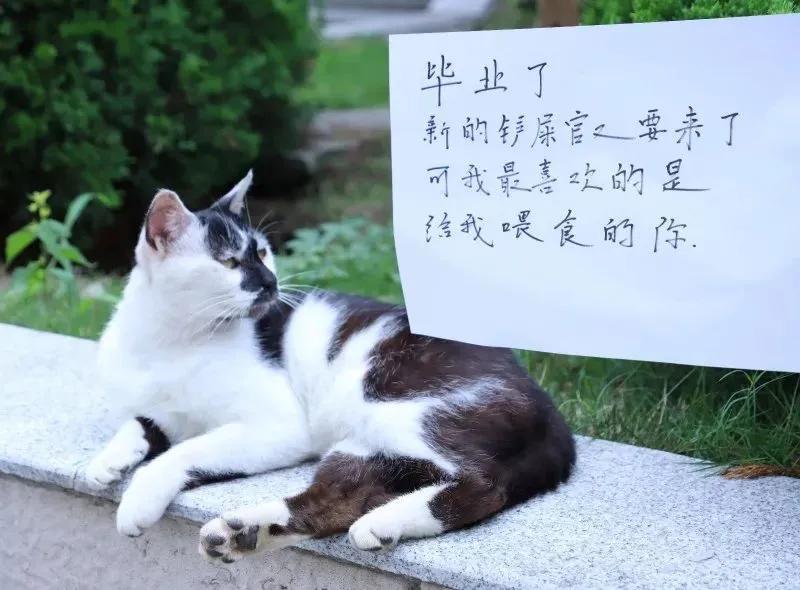 毕业了
新的铲屎官又要来了
可我最喜欢的是
给我喂食的你.